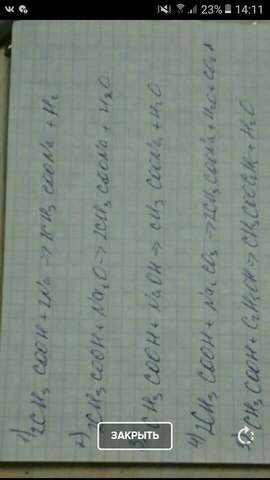 23% 14:11
1) 2CH3COOH + 2Na → 2CH3COONa + H2
2) 2CH3COOH + Na2O → 2CH3COONa + H2O
3) CH3COOH + NaOH → CH3COONa + H2O
4) 2CH3COOH + Na2CO3 → 2CH3COONa + H2O + CO2
5) CH3COOH + C2H5OH → CH3COOC2H5 + H2O
ЗАКРЫТЬ